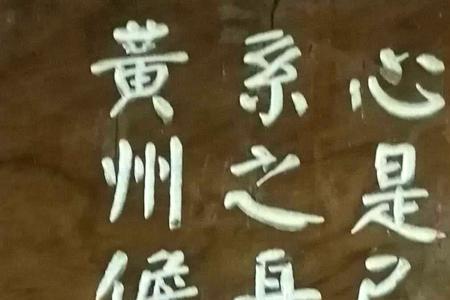 心是
系之
黃州